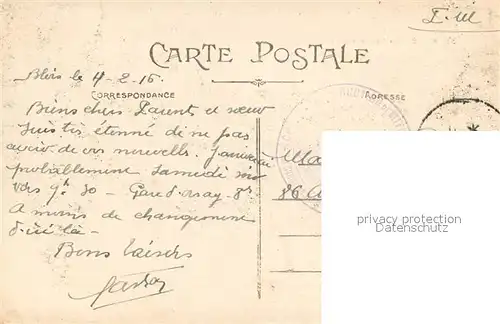 F.M
CARTE POSTALE
Blois le 4-2-15
CORRESPONDANCE
ADRESSE
Biens chers Parents et sœur
Suis très étonné de ne pas
avoir de vos nouvelles. J'arriverai
probablement Samedi
vers 7h 30 - Gare d'orsay
A moins de changement
d'ici là -
Bons baisers
86 A
privacy protection
Datenschutz